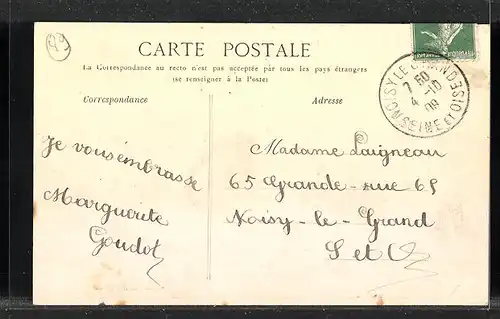 89
CARTE POSTALE
La Correspondance au recto n'est pas acceptée par tous les pays étrangers
(se renseigner à la Poste)
Correspondance
Adresse
NOISY LE GRAND
SEINE ET OISE
7 50
4 -10
09
Je vous embrasse
Marguerite
Goudot
Madame Laigneau
65 Grande-rue 65
Noisy-le-Grand
S et O